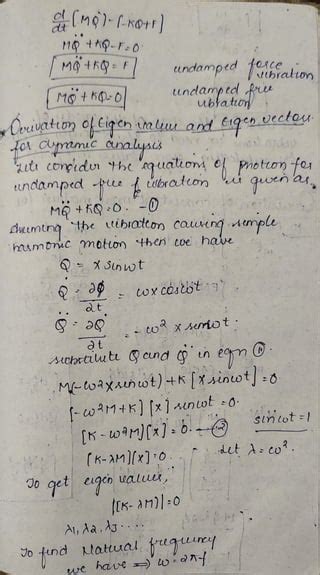 d/dt [MQ̇] - [-KQ+F]
MQ̈ + KQ - F = 0
MQ̈ + KQ = F undamped force vibration
MQ̈ + KQ = 0 undamped free vibration
Derivation of eigen value and eigen vectors
for dynamic analysis
Lets consider the equations of motion for
undamped free vibration is given as
MQ̈ + KQ = 0. - ①
Assuming the vibration causing simple
harmonic motion then we have
Q = x sinωt
Q̇ = ∂Q/∂t = ωx cosωt
Q̈ = ∂Q̇/∂t = -ω² x sinωt.
substitute Q and Q̈ in eqn ①
M(-ω²x sinωt) + K [x sinωt] = 0
[-ω²M + K] [x] sinωt = 0.
[K - ω²M][x] = 0. - ② sinωt = 1
[K - λM][x] = 0. Let λ = ω².
To get eigen values,
|[K - λM]| = 0
λ1, λ2, λ3 ....
To find Natural frequency
we have ⇒ ω = 2πf